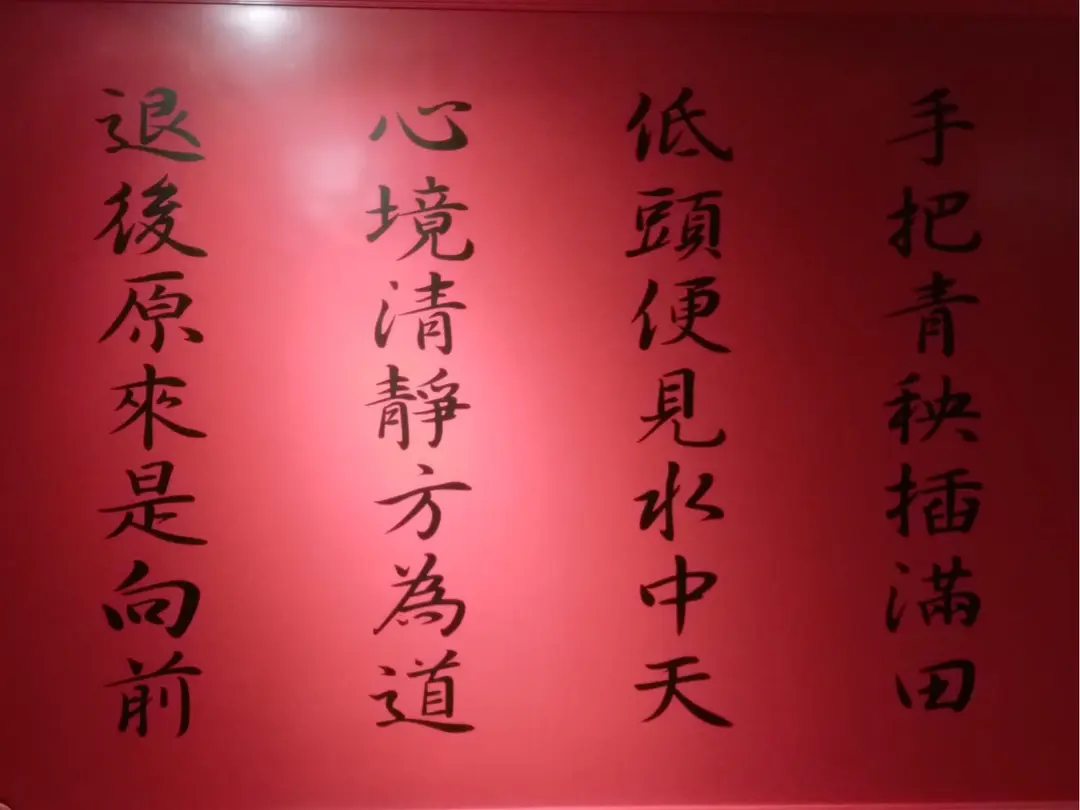 手把青秧插滿田
低頭便見水中天
心境清靜方為道
退後原來是向前